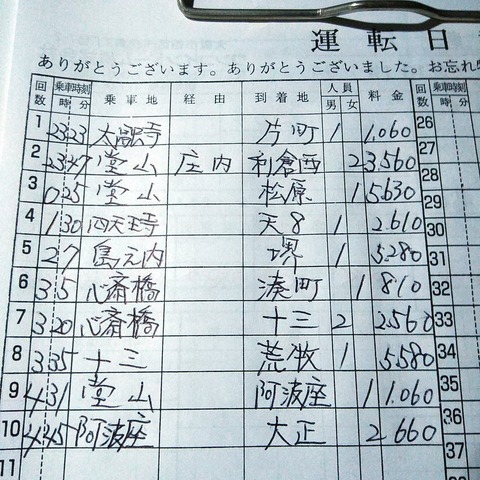 運転日
ありがとうございます。ありがとうございました。お忘れ
回数 乗車時刻 時 分 乗車地 経由 到着地 人員 男 女 料金 回数
1 23 23 大融寺 片町 1 1,060 26
2 23 47 堂山 庄内 利倉西 2 3,560 27
3 0 25 堂山 松原 1 5,630 28
4 1 30 四天王寺 天8 1 2,610 29
5 2 7 島之内 堺 1 5,280 30
6 3 5 心斎橋 湊町 1 810 31
7 3 20 心斎橋 十三 2 2,560 32
8 3 35 十三 荒牧 1 5,580 33
9 4 31 堂山 阿波座 1 1,060 34
10 4 45 阿波座 大正 2 660 35
11 36
37